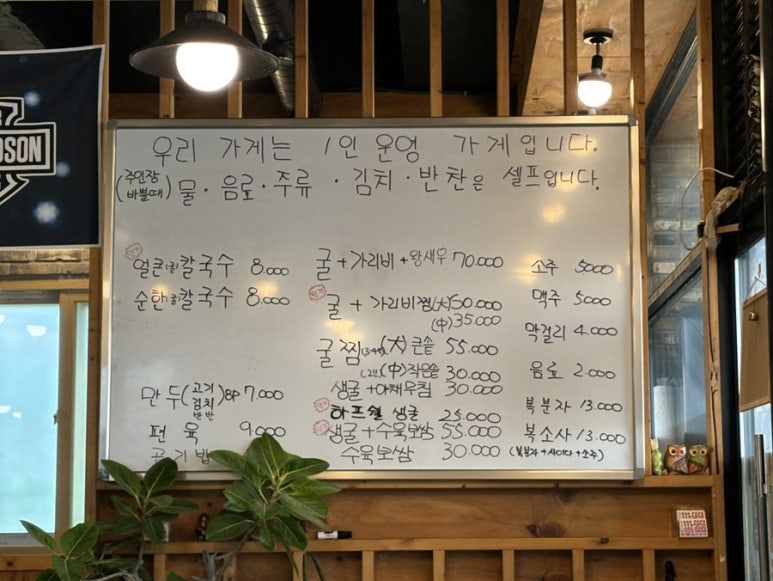 DSON
우리 가게는 1인 운영 가게입니다.
(주인장 바쁠때) 물·음료·주류·김치·반찬은 셀프입니다.
얼큰(굴)칼국수 8.000
순한(굴)칼국수 8.000
만두(고기 김치 반반)8P 7.000
편육 9.000
공기밥
굴+가리비+왕새우 70.000
굴+가리비찜(大)50.000
(中)35.000
굴찜(3~4인)(大)큰솥 55.000
(2인)(中)작은솥 30.000
생굴+야채무침 30.000
하프쉘 생굴 25.000
생굴+수육보쌈 55.000
수육보쌈 30.000
소주 5000
맥주 5000
막걸리 4.000
음료 2.000
복분자 13.000
복소사 13.000
(복분자+사이다+소주)